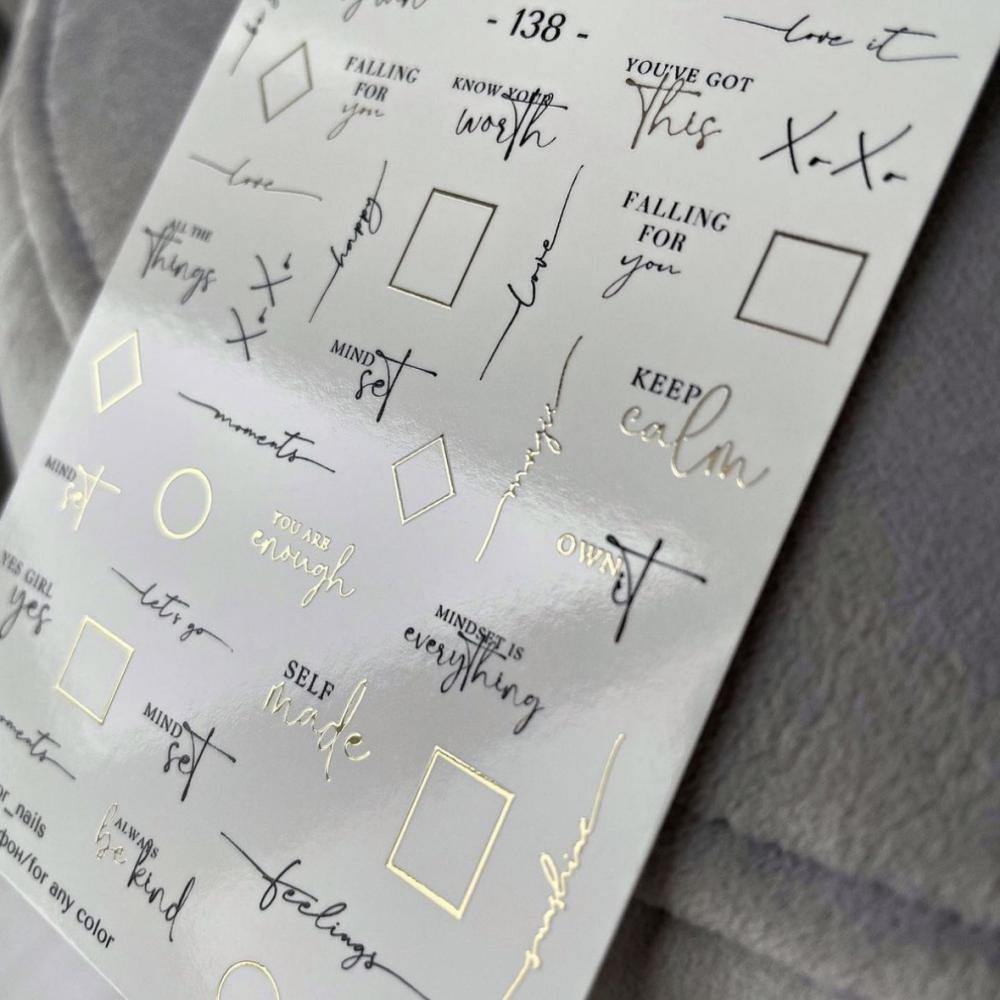 - 138 -
love it
FALLING
FOR
you
KNOW YOUR
worth
YOU'VE GOT
This
XoXo
love
happy
love
FALLING
FOR
you
ALL THE
Things
XoXo
MIND
set
KEEP
calm
moments
MIND
set
YOU ARE
enough
OWN
it
YES GIRL
yes
let's go
MINDSET IS
everything
SELF
made
MIND
set
ALWAYS
be kind
feelings
sunshine
фон/for any color